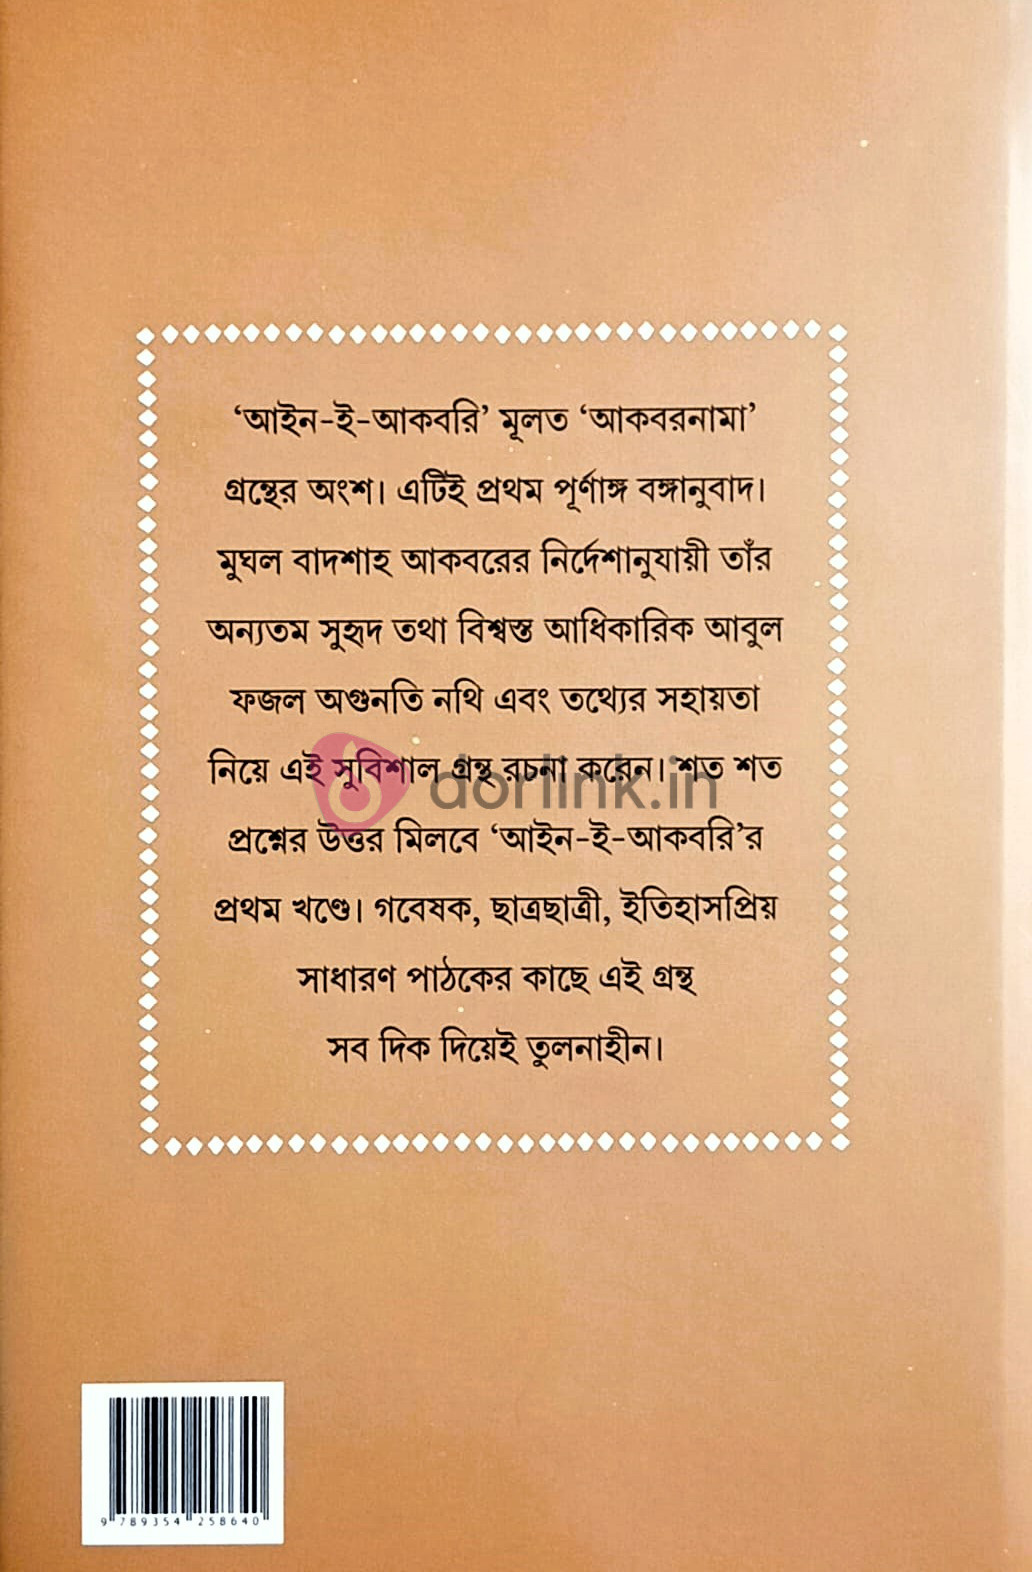 ‘আইন-ই-আকবরি’ মূলত ‘আকবরনামা’
গ্রন্থের অংশ। এটিই প্রথম পূর্ণাঙ্গ বঙ্গানুবাদ।
মুঘল বাদশাহ আকবরের নির্দেশানুযায়ী তাঁর
অন্যতম সুহৃদ তথা বিশ্বস্ত আধিকারিক আবুল
ফজল অগুনতি নথি এবং তথ্যের সহায়তা
নিয়ে এই সুবিশাল গ্রন্থ রচনা করেন। শত শত
dorlink.in
প্রশ্নের উত্তর মিলবে ‘আইন-ই-আকবরি’র
প্রথম খণ্ডে। গবেষক, ছাত্রছাত্রী, ইতিহাসপ্রিয়
সাধারণ পাঠকের কাছে এই গ্রন্থ
সব দিক দিয়েই তুলনাহীন।
9 789354 258640